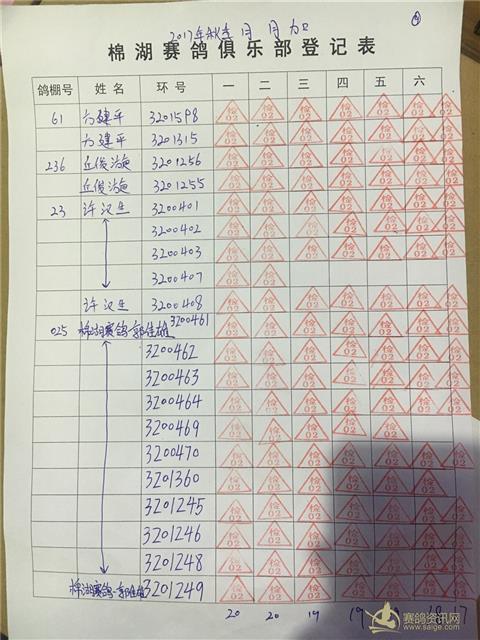 2017年秋季 月 月 九口
棉湖赛鸽俱乐部登记表
鸽棚号 姓名 环号 一 二 三 四 五 六
61 方建平 3201598 检02 检02 检02 检02 检02 检02 检02
方建平 3201315 检02 检02 检02 检02 检02 检02 检02
236 丘俊海 3201256 检02 检02 检02 检02 检02 检02 检02
丘俊海 3201255 检02 检02 检02 检02 检02 检02 检02
23 许汉生 3200401 检02 检02 检02 检02 检02 检02 检02
3200402 检02 检02 检02 检02 检02 检02 检02
3200403 检02 检02 检02 检02 检02 检02 检02
3200407 检02 检02
许汉生 3200408 检02 检02 检02 检02 检02 检02 检02
025 棉湖赛鸽-郭佳雄 3200461 检02 检02 检02 检02 检02 检02 检02
3200462 检02 检02 检02 检02 检02 检02 检02
3200463 检02 检02 检02 检02 检02 检02 检02
3200464 检02 检02 检02 检02 检02 检02 检02
3200469 检02 检02 检02 检02 检02
3200470 检02 检02 检02 检02 检02 检02 检02
3201360 检02 检02 检02 检02 检02 检02
3201245 检02 检02 检02 检02 检02 检02 检02
3201246 检02 检02 检02 检02 检02 检02 检02
3201248 检02 检02 检02 检02 检02 检02 检02
棉湖赛鸽-郭佳雄 3201249 检02 检02 检02 检02 检02 检02 检02
20 20 19 19 18 17
赛鸽资讯网
www.saige.com